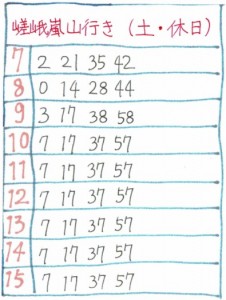 嵯峨嵐山行き（土・休日）
7 2 21 35 42
8 0 14 28 44
9 3 17 38 58
10 7 17 37 57
11 7 17 37 57
12 7 17 37 57
13 7 17 37 57
14 7 17 37 57
15 7 17 37 57